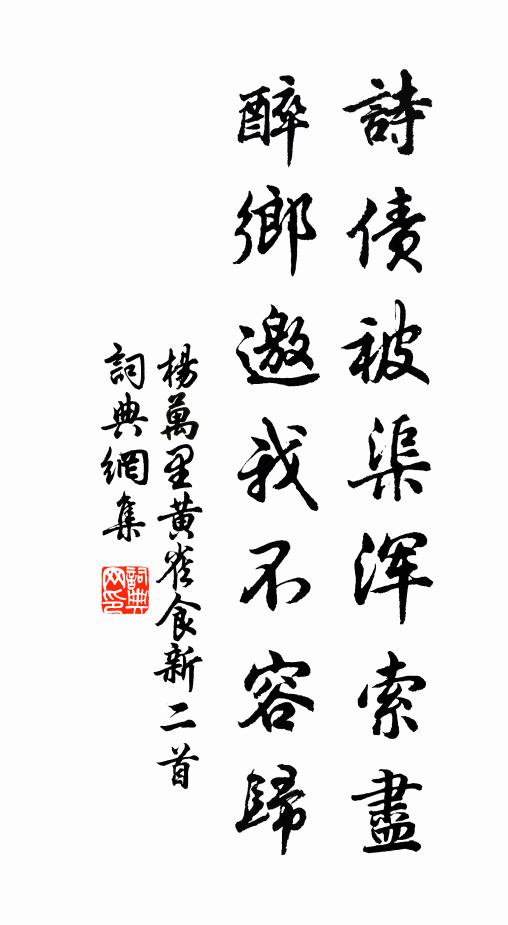 詩債被渠浑索盡
醉鄉邀我不容歸
楊萬里黄雀食新二首
詞典網集
詞典网印